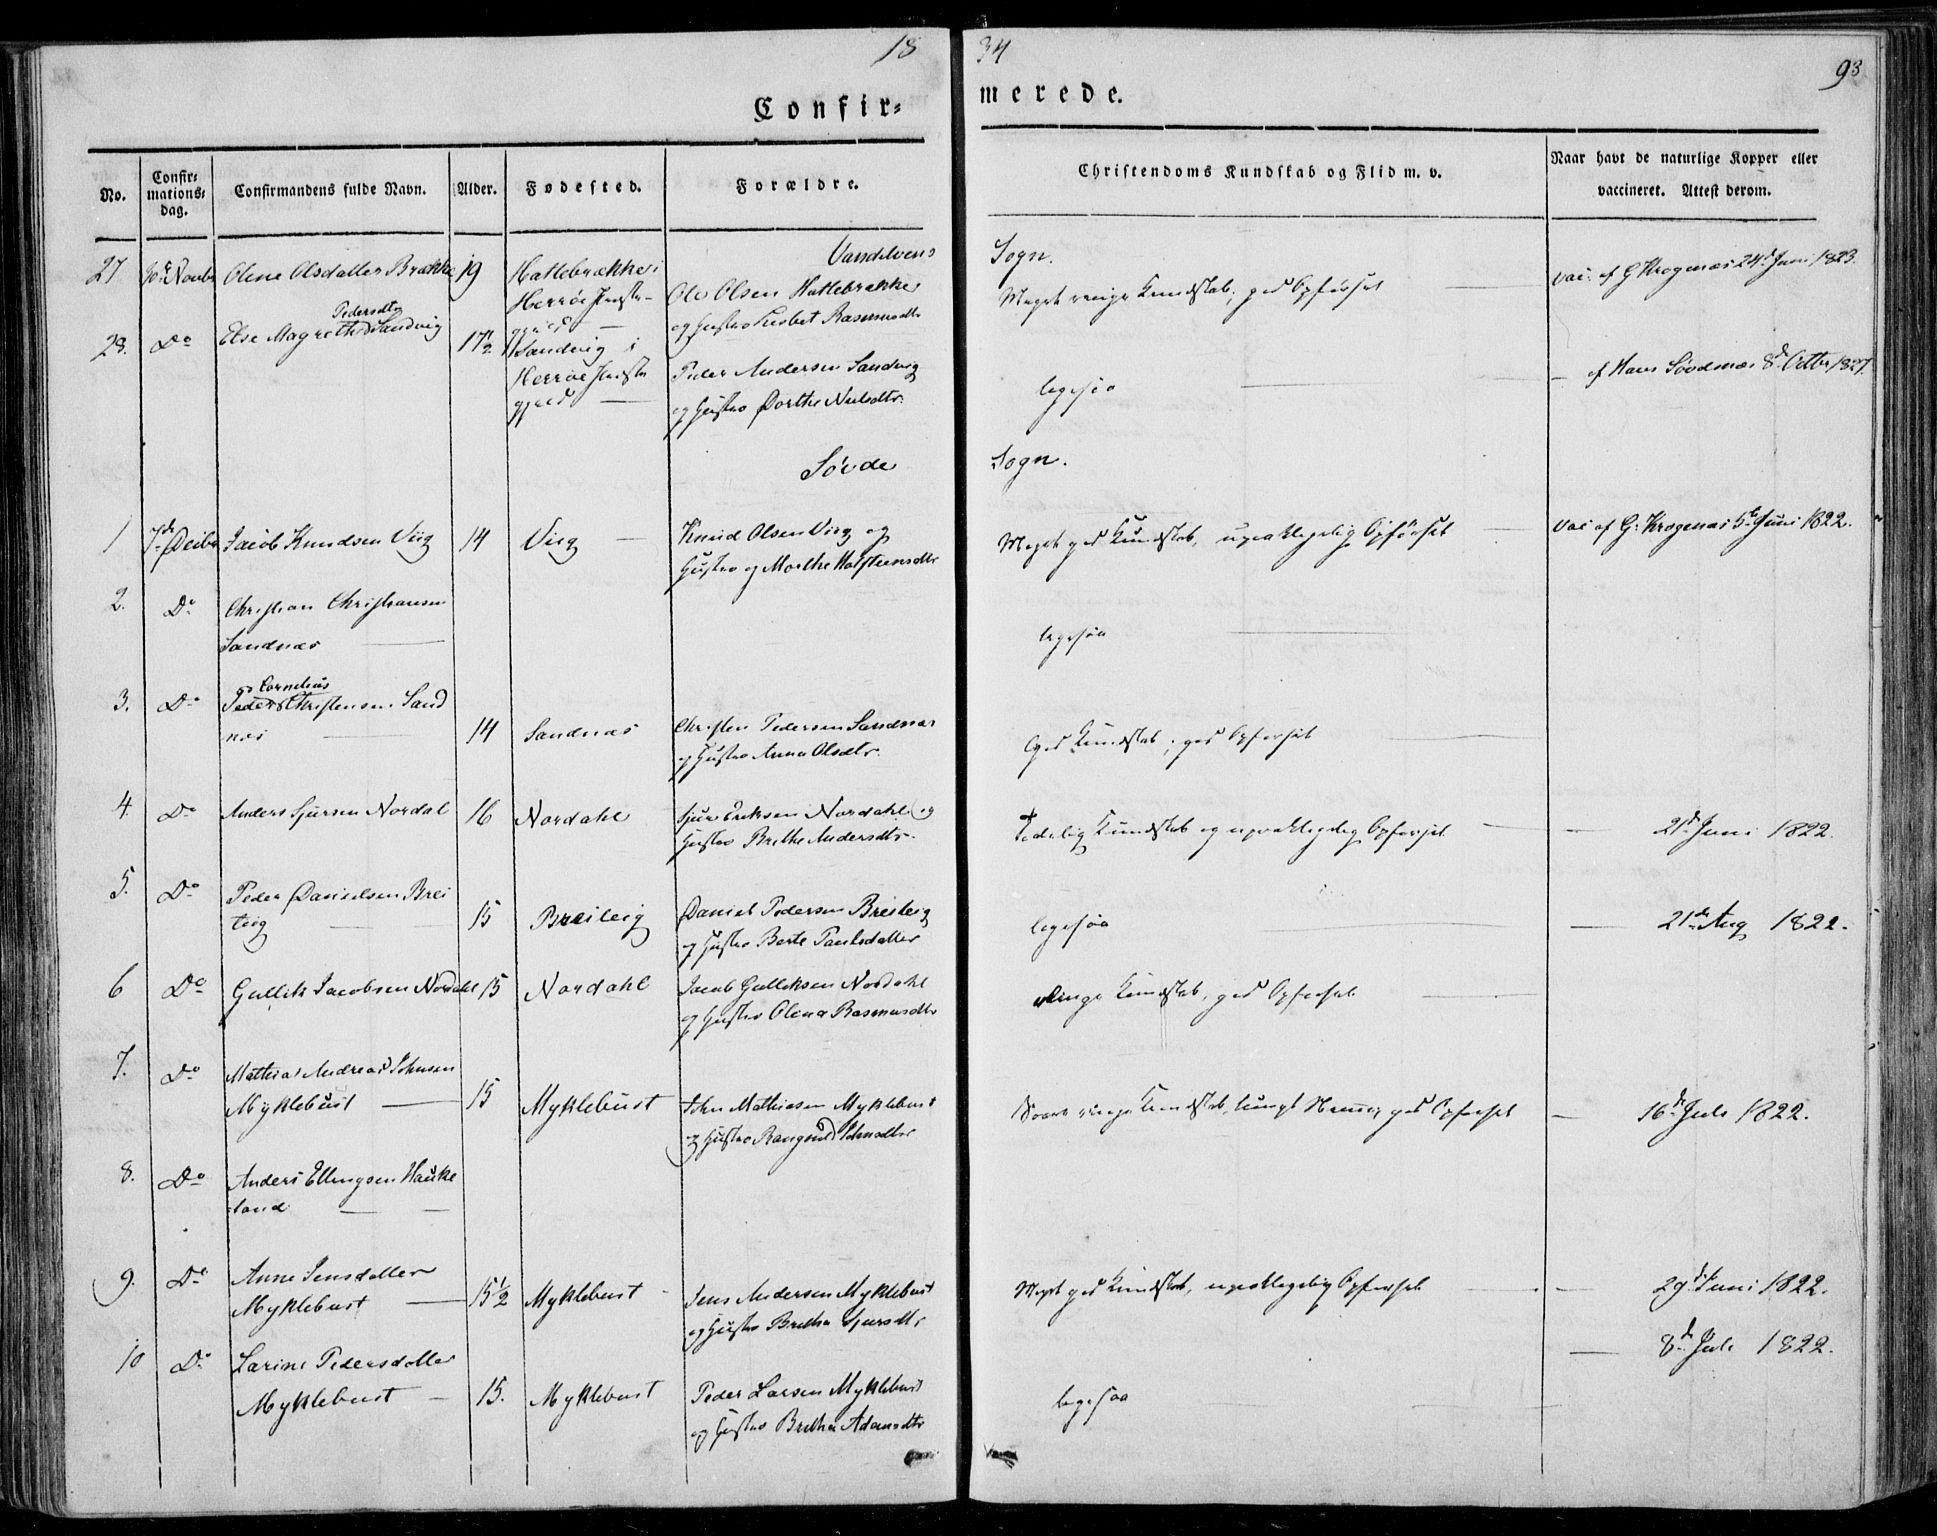 18 34
93
Confir= merede.
No.
Confir=
mations=
dag.
Confirmandens fulde Navn.
Alder.
Fødested.
Forældre.
Christendoms Kundskab og Flid m. v.
Naar havt de naturlige Kopper eller
vaccineret. Attest derom.
Vandelvens Sogn.
27 Olene Olsdatter Brække 19 Hatlebrække i
Herröe Præste-
gjeld —
Ole Olsen Hatlebrække
og Hustro Lisbet Rasmusdtr
Meget ringe Kundskab, god Opförsel — vac. af G. Krogenæs 24d Juni 1823.
28. Do Else Magrethe Pedersdtr Sandvig 17½ Sandvig i
Herröe Præste
gjeld —
Peder Andersen Sandvig
og Hustro Dorthe Nielsdtr.
ligesaa — — af Hans Sövdenæs 8d Octbr 1827.
Sövde Sogn.
1 7de Decbr Jacob Knudsen Viig 14 Viig — Knud Olsen Viig og
Hustro og Marthe Halsteensdtr
Meget god Kundskab, upaaklagelig Opförsel — vac af G: Krogenæs 5te Juni 1822.
2. Do Christian Christiansen
Sandnæs —
ligesaa —
3. Do Peder Cornelius Christensen Sand
næs — 14 Sandnæs Christen Pedersen Sandnæs
og Hustro Anna Olsdtr.
God Kundskab, god Opförsel —
4. Do Anders Sjursen Nordal 16 Nordahl Sjur Eriksen Nordahl og
Hustro Brithe Andersdtr.
Temelig Kundskab og upaaklagelig Opförsel — — 21d Juni 1822.
5. Do Peder Danielsen Brei
teig — — 15 Breiteig Daniel Pedersen Breiteig
og Hustro Berte Paulsdatter
ligesaa — — 21de Aug 1822.
6 Do Gullik Jacobsen Nordahl 15 Nordahl Jacob Gulliksen Nordahl
og Hustro Olena Rasmusdtr
Ringe Kundskab, god Opförsel —
7. Do Mathias Andreas Johnsen
Myklebust — 15 Myklebust John Mathiasen Myklebust
og Hustro Rangnild Johnsdtr
Svært ringe Kundskab, tungt Nemme, god Opförsel — 16de Juli 1822.
8. Do Anders Ellingsen Hauke
land — —
9. Do Anne Jensdatter
Myklebust — 15½ Myklebust Jens Andersen Myklebust
og Hustro Brithe Sjursdtr
Meget god Kundskab, upaaklagelig Opförsel — — 29d Juni 1822.
10 Do Larine Pedersdatter
Myklebust — 15. Myklebust Peder Larsen Myklebust
og Hustro Brithe Adamsdtr
ligesaa — — 8de Juli 1822.